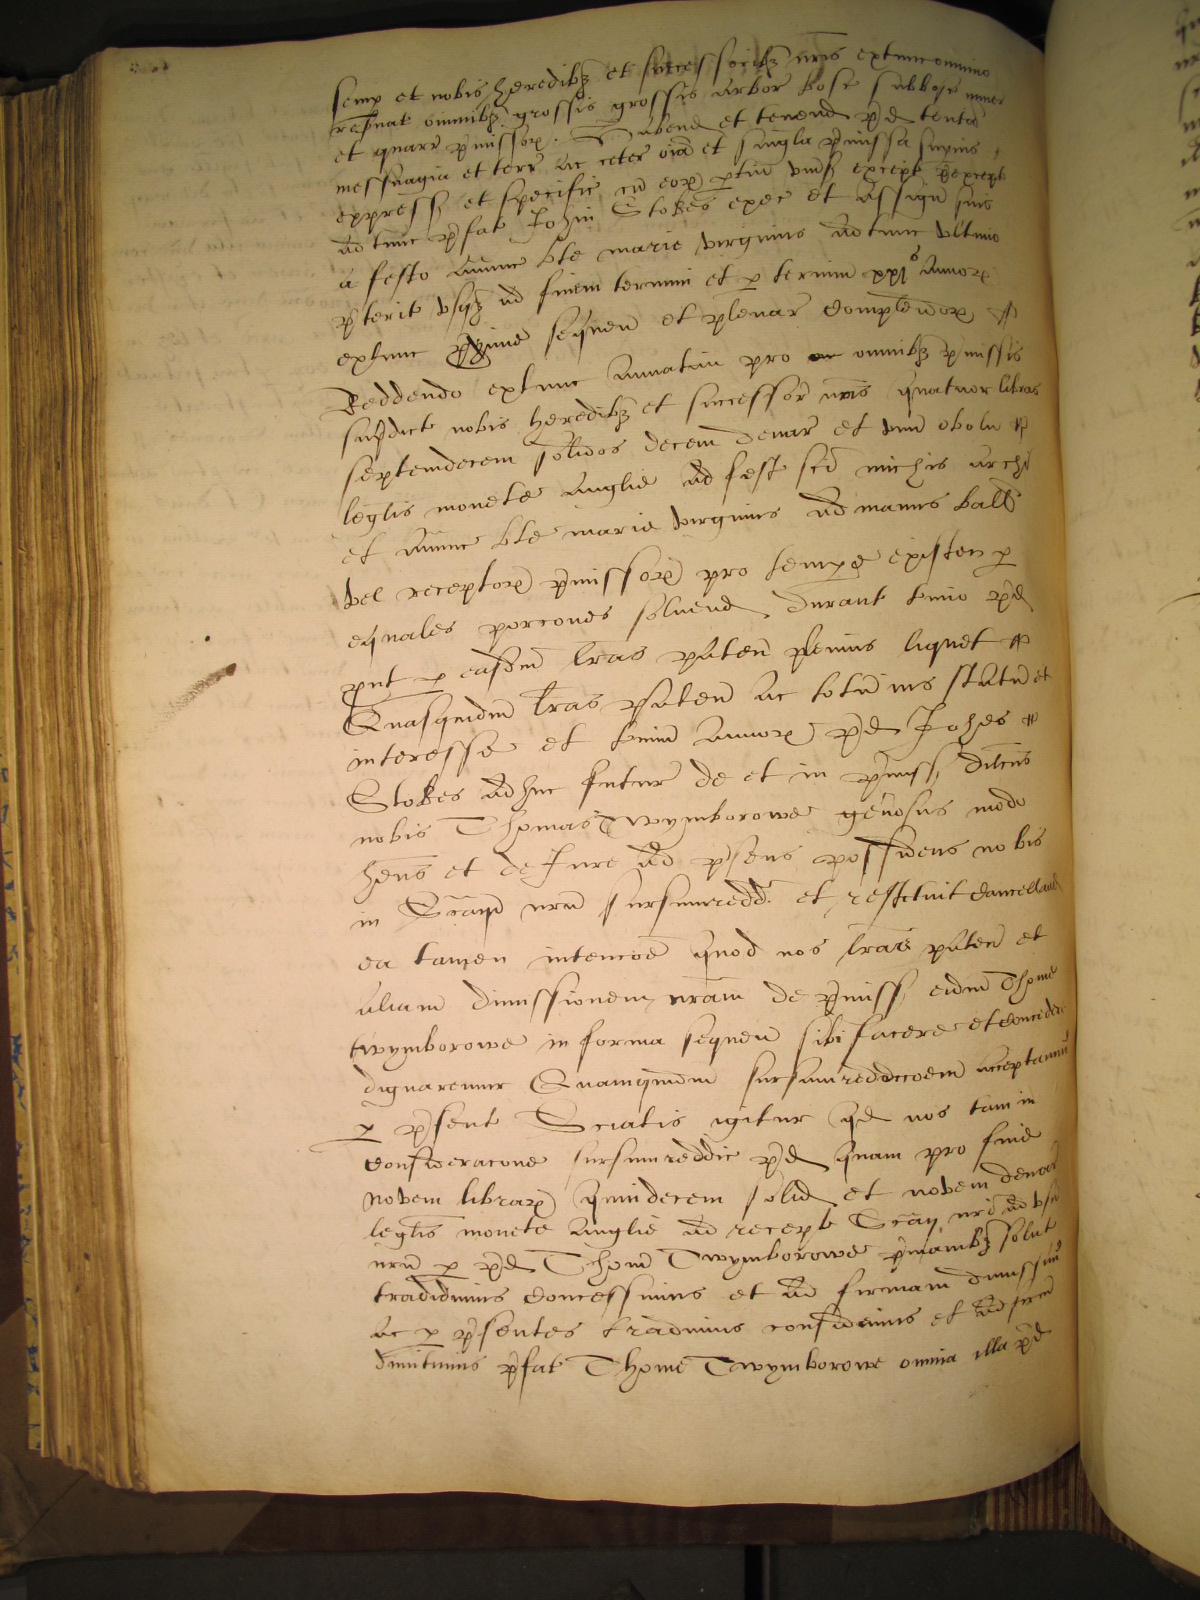 semp et nobis heredibz et successoribz nris extunc omnino
resuat omnibz grossis grossis arbor bosc subbosc miner
et quarr pmissor. Habend et tenend pd tenta
messuagia et terr ac ceter oia et singla pmissa supius
express et specific cu eor ptin univs except pexcept
adtunc pfat Johni Stokes exec et assign suis
a festo Annunc bte marie virginis adtunc ultimo
pterit usqz ad finem termini et p terminu xxj⁰ Annor
extunc px sequen et plenar complendor
Reddendo extunc annatim pro omnibz pmissis
supdict nobis heredibz et successor nris quatuor libras
septemdecem solidos decem denar et unu obolu
leglis monete Anglie ad fest sci michis archi
et Annunc bte marie virginis ad manus ball
vel receptor pmissor pro tempe existen p
equales porcones solvend durant tmino pd
put p easdm lras paten plenius liquet
Quasquidm lras paten ac totu ius statu et
interesse et tminu annor pd Johes
Stokes adhuc futur de et in pmiss dilcus
nobis Thomas Twymborowe genosus modo
hens et de Jure ad psens possidens nobis
in Scacm nrm sursumredd. et restituit cancelland
ea tamen intencoe quod nos lras nras paten et
aliam dimissionem nram de pmiss eidm Thome
twymborowe in forma sequen sibi facere et concedere
dignaremur Quamquidm sursumreddicoem acceptamus
p psent Sciatis igitur qd nos tam in
consideracone sursumreddic pd quam pro fine
Novem librar quindecem solid et novem denar
leglis monete Anglie ad recept Scacij nri ad usu
nrm p pd Thom Twymborowe pmanibz solut
tradidimus concessimus et ad firmam dimissim
ac p psentes tradimus concedimus et ad firm
dimittimus pfat Thome Twymborowe omnia illa pd